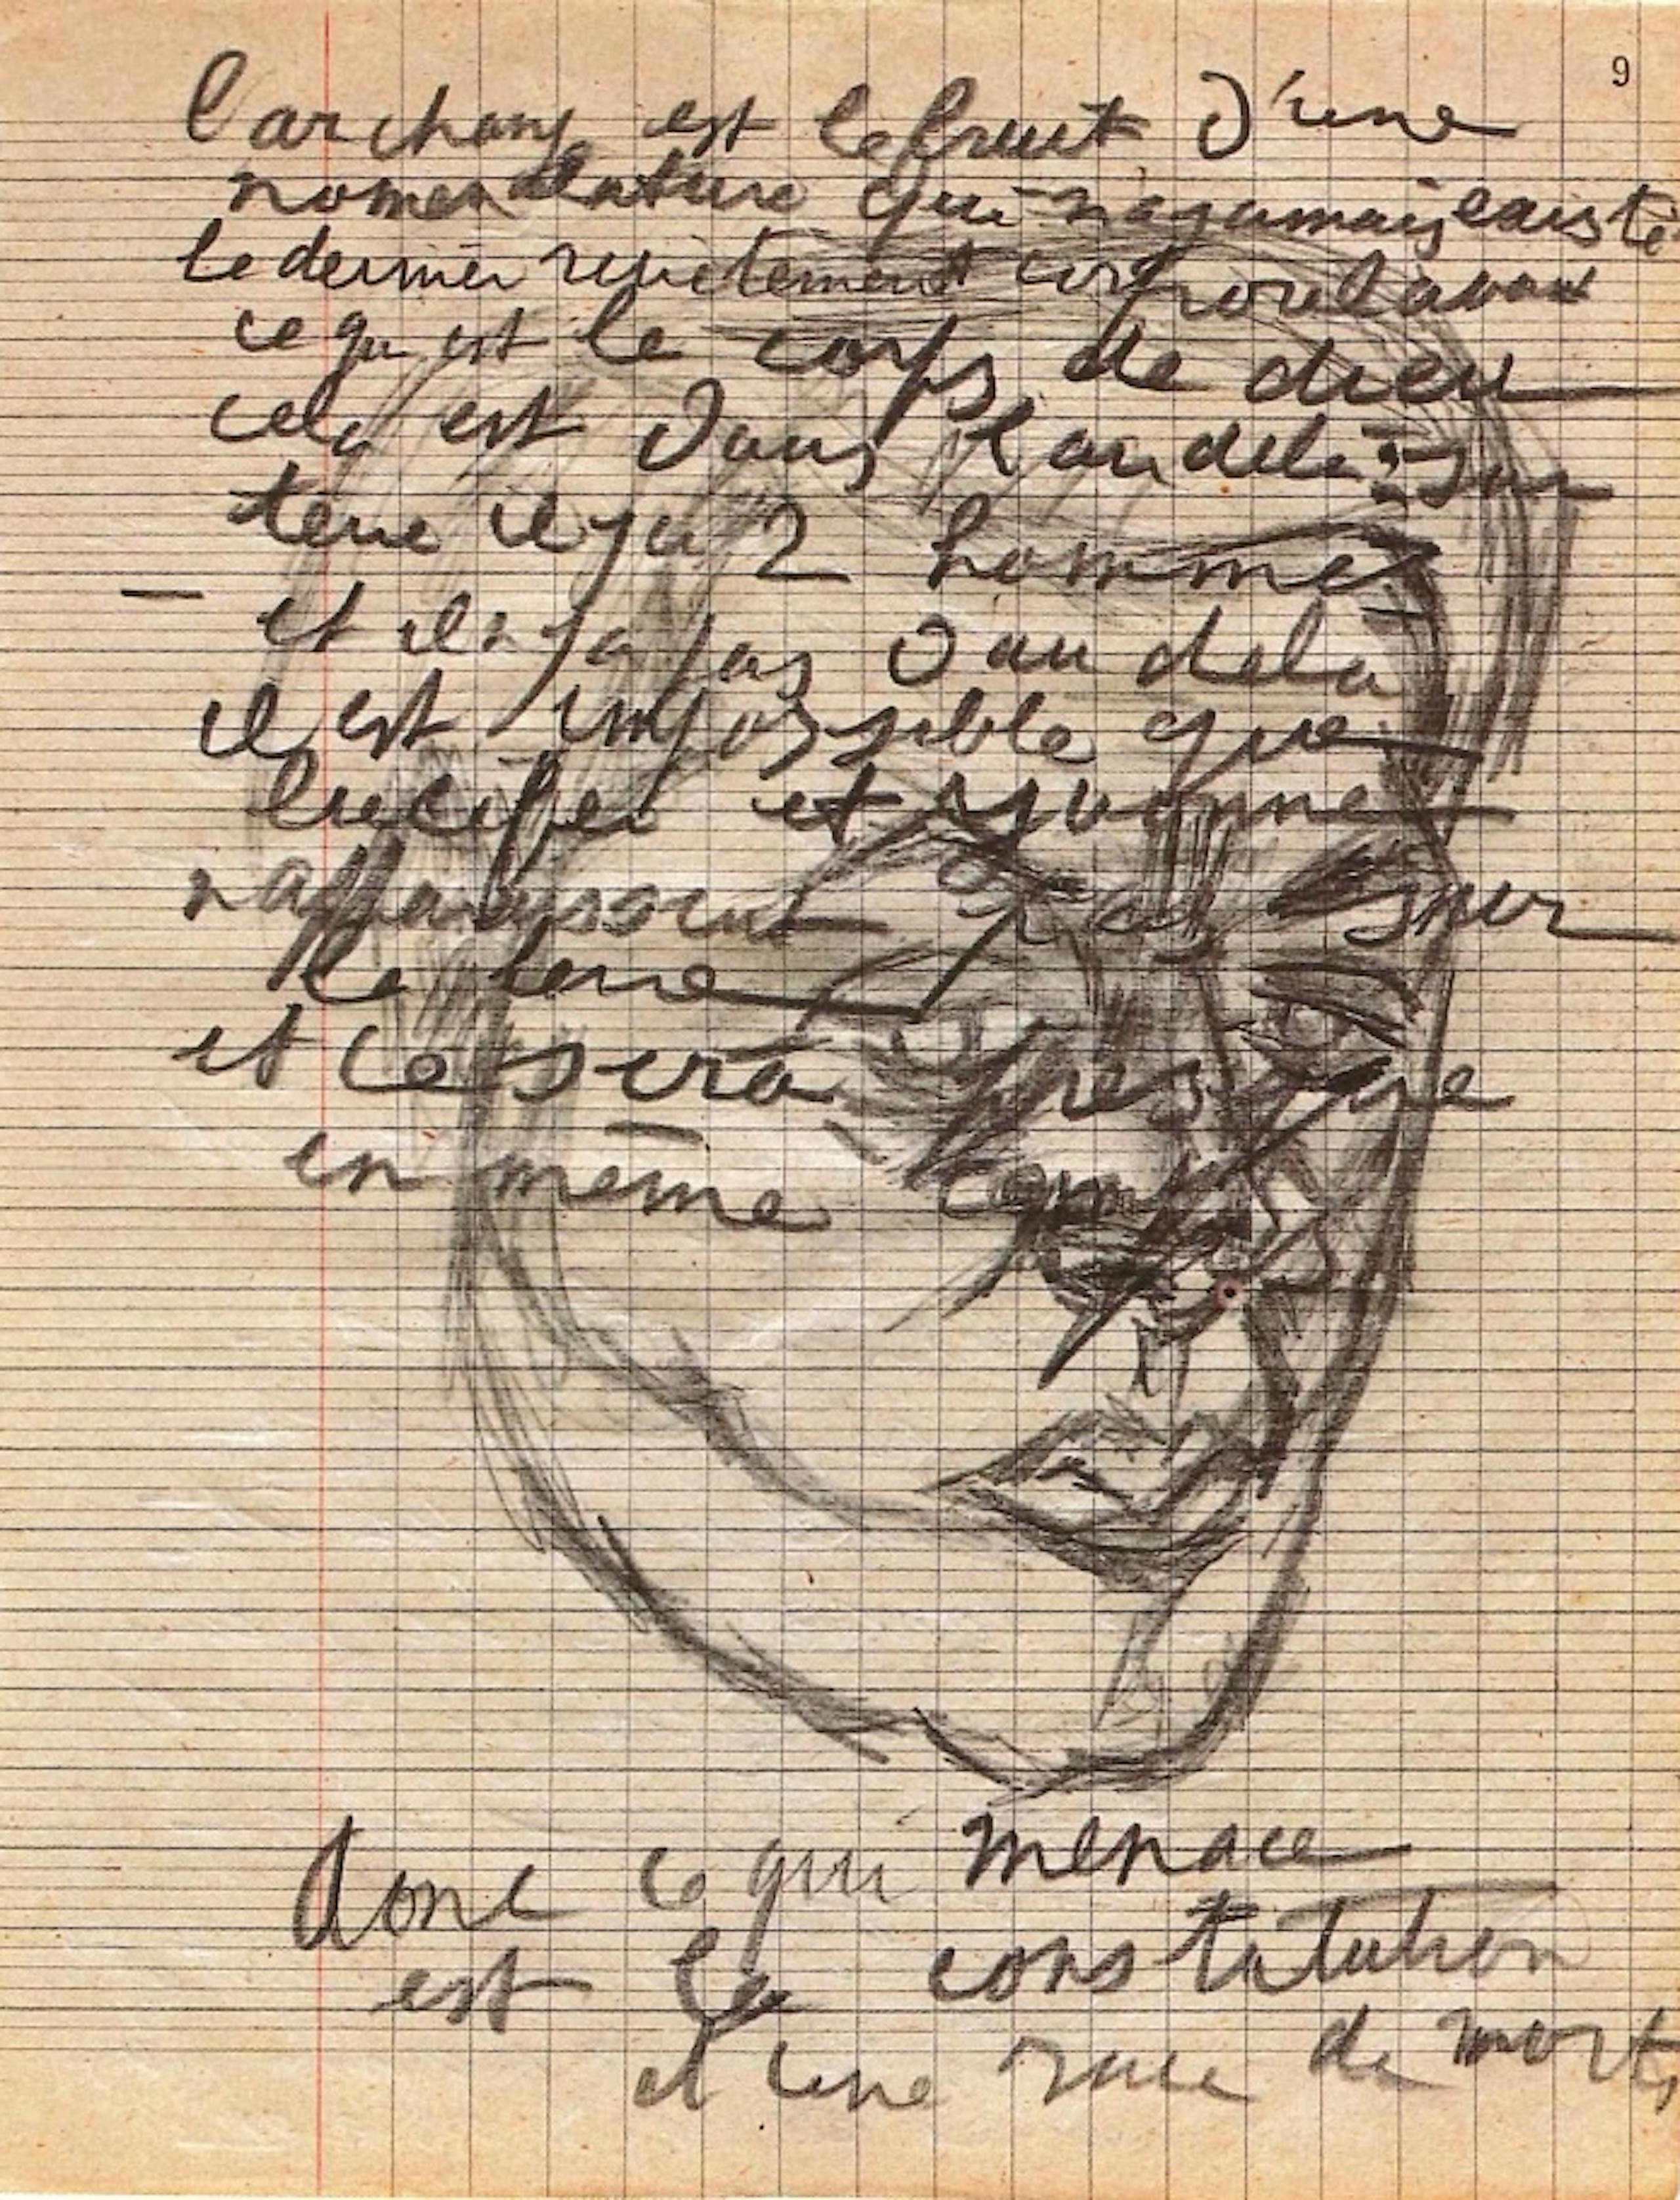 9
l'archange est le fruit d'une
nomenclature qui n'a jamais existé
le dernier revêtement corporel avant
ce qu est le corps de dieu
cela est dans l au dela : sur
terre il y a 2 hommes
— et il n y a pas d au dela
il est impossible que
lucifer et yvonne
n apparaissent pas sur
la terre
et ce sera presque
en même temps
donc ce qui menace
est la constitution
d une race de morts